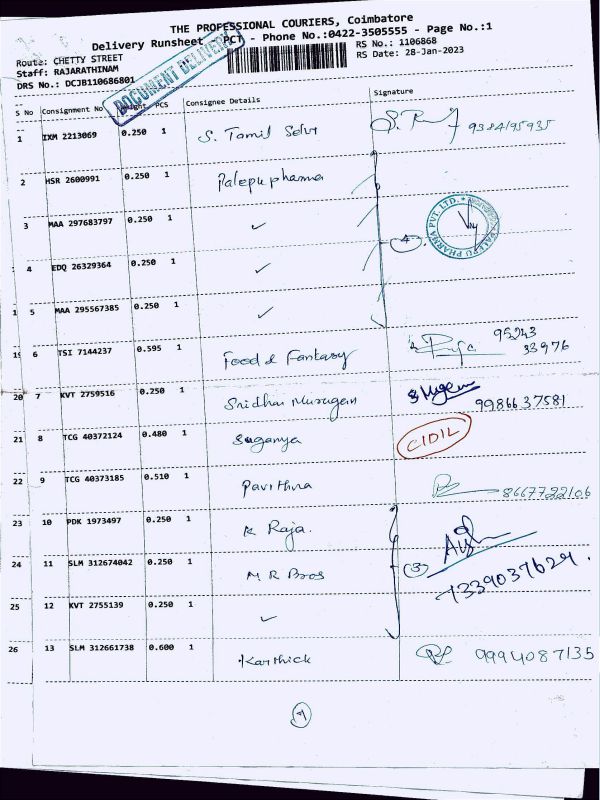 THE PROFESSIONAL COURIERS, Coimbatore
Delivery Runsheet - PCT - Phone No.:0422-3505555 - Page No.:1
Route: CHETTY STREET
RS No.: 1106868
Staff: RAJARATHINAM
RS Date: 28-Jan-2023
DRS No.: DCJB110686801
DOCUMENT DELIVERY
S No Consignment No Weight PCS Consignee Details Signature
1 IXM 2213069 0.250 1 S. Tamil Selvi 9384195935
2 HSR 2600991 0.250 1 Palepu pharma
3 MAA 297683797 0.250 1 ✓
PALEPU PHARMA PVT. LTD.
4
4 EDQ 26329364 0.250 1 ✓
1 5 MAA 295567385 0.250 1 ✓
19 6 TSI 7144237 0.595 1 Food & Fantasy 95243
33976
20 7 KVT 2759516 0.250 1 Sridhar Murugan 9986637581
21 8 TCG 40372124 0.480 1 Suganya CIDIL
22 9 TCG 40373185 0.510 1 Pavithra 8667722106
23 10 PDK 1973497 0.250 1 K Raja.
24 11 SLM 312674042 0.250 1 M R Bros 3
7339037624.
25 12 KVT 2755139 0.250 1 ✓
26 13 SLM 312661738 0.600 1 Karthick 9994087135